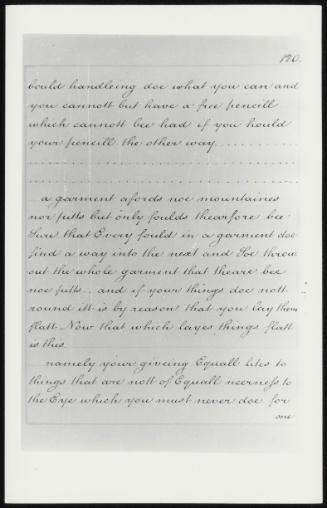 120.
bould handleing doe what you can and
you cannott but have a free pencill
which cannott bee had if you hould
your pencill the other way..........
..............................
..............................
... a garment afords noe mountaines
nor pitts but only foulds thearfore bee
Sure that Every fould in a garment doe
find a way into the next and Soe throw
out the whole garment that theare bee
noe pitts... and if your things doe nott
round itt is by reason that you lay them
flatt. Now that which layes things flatt
is this.
namely your giveing Equall lites to
things that are nott of Equall neerness to
the Eye which you must never doe for
one